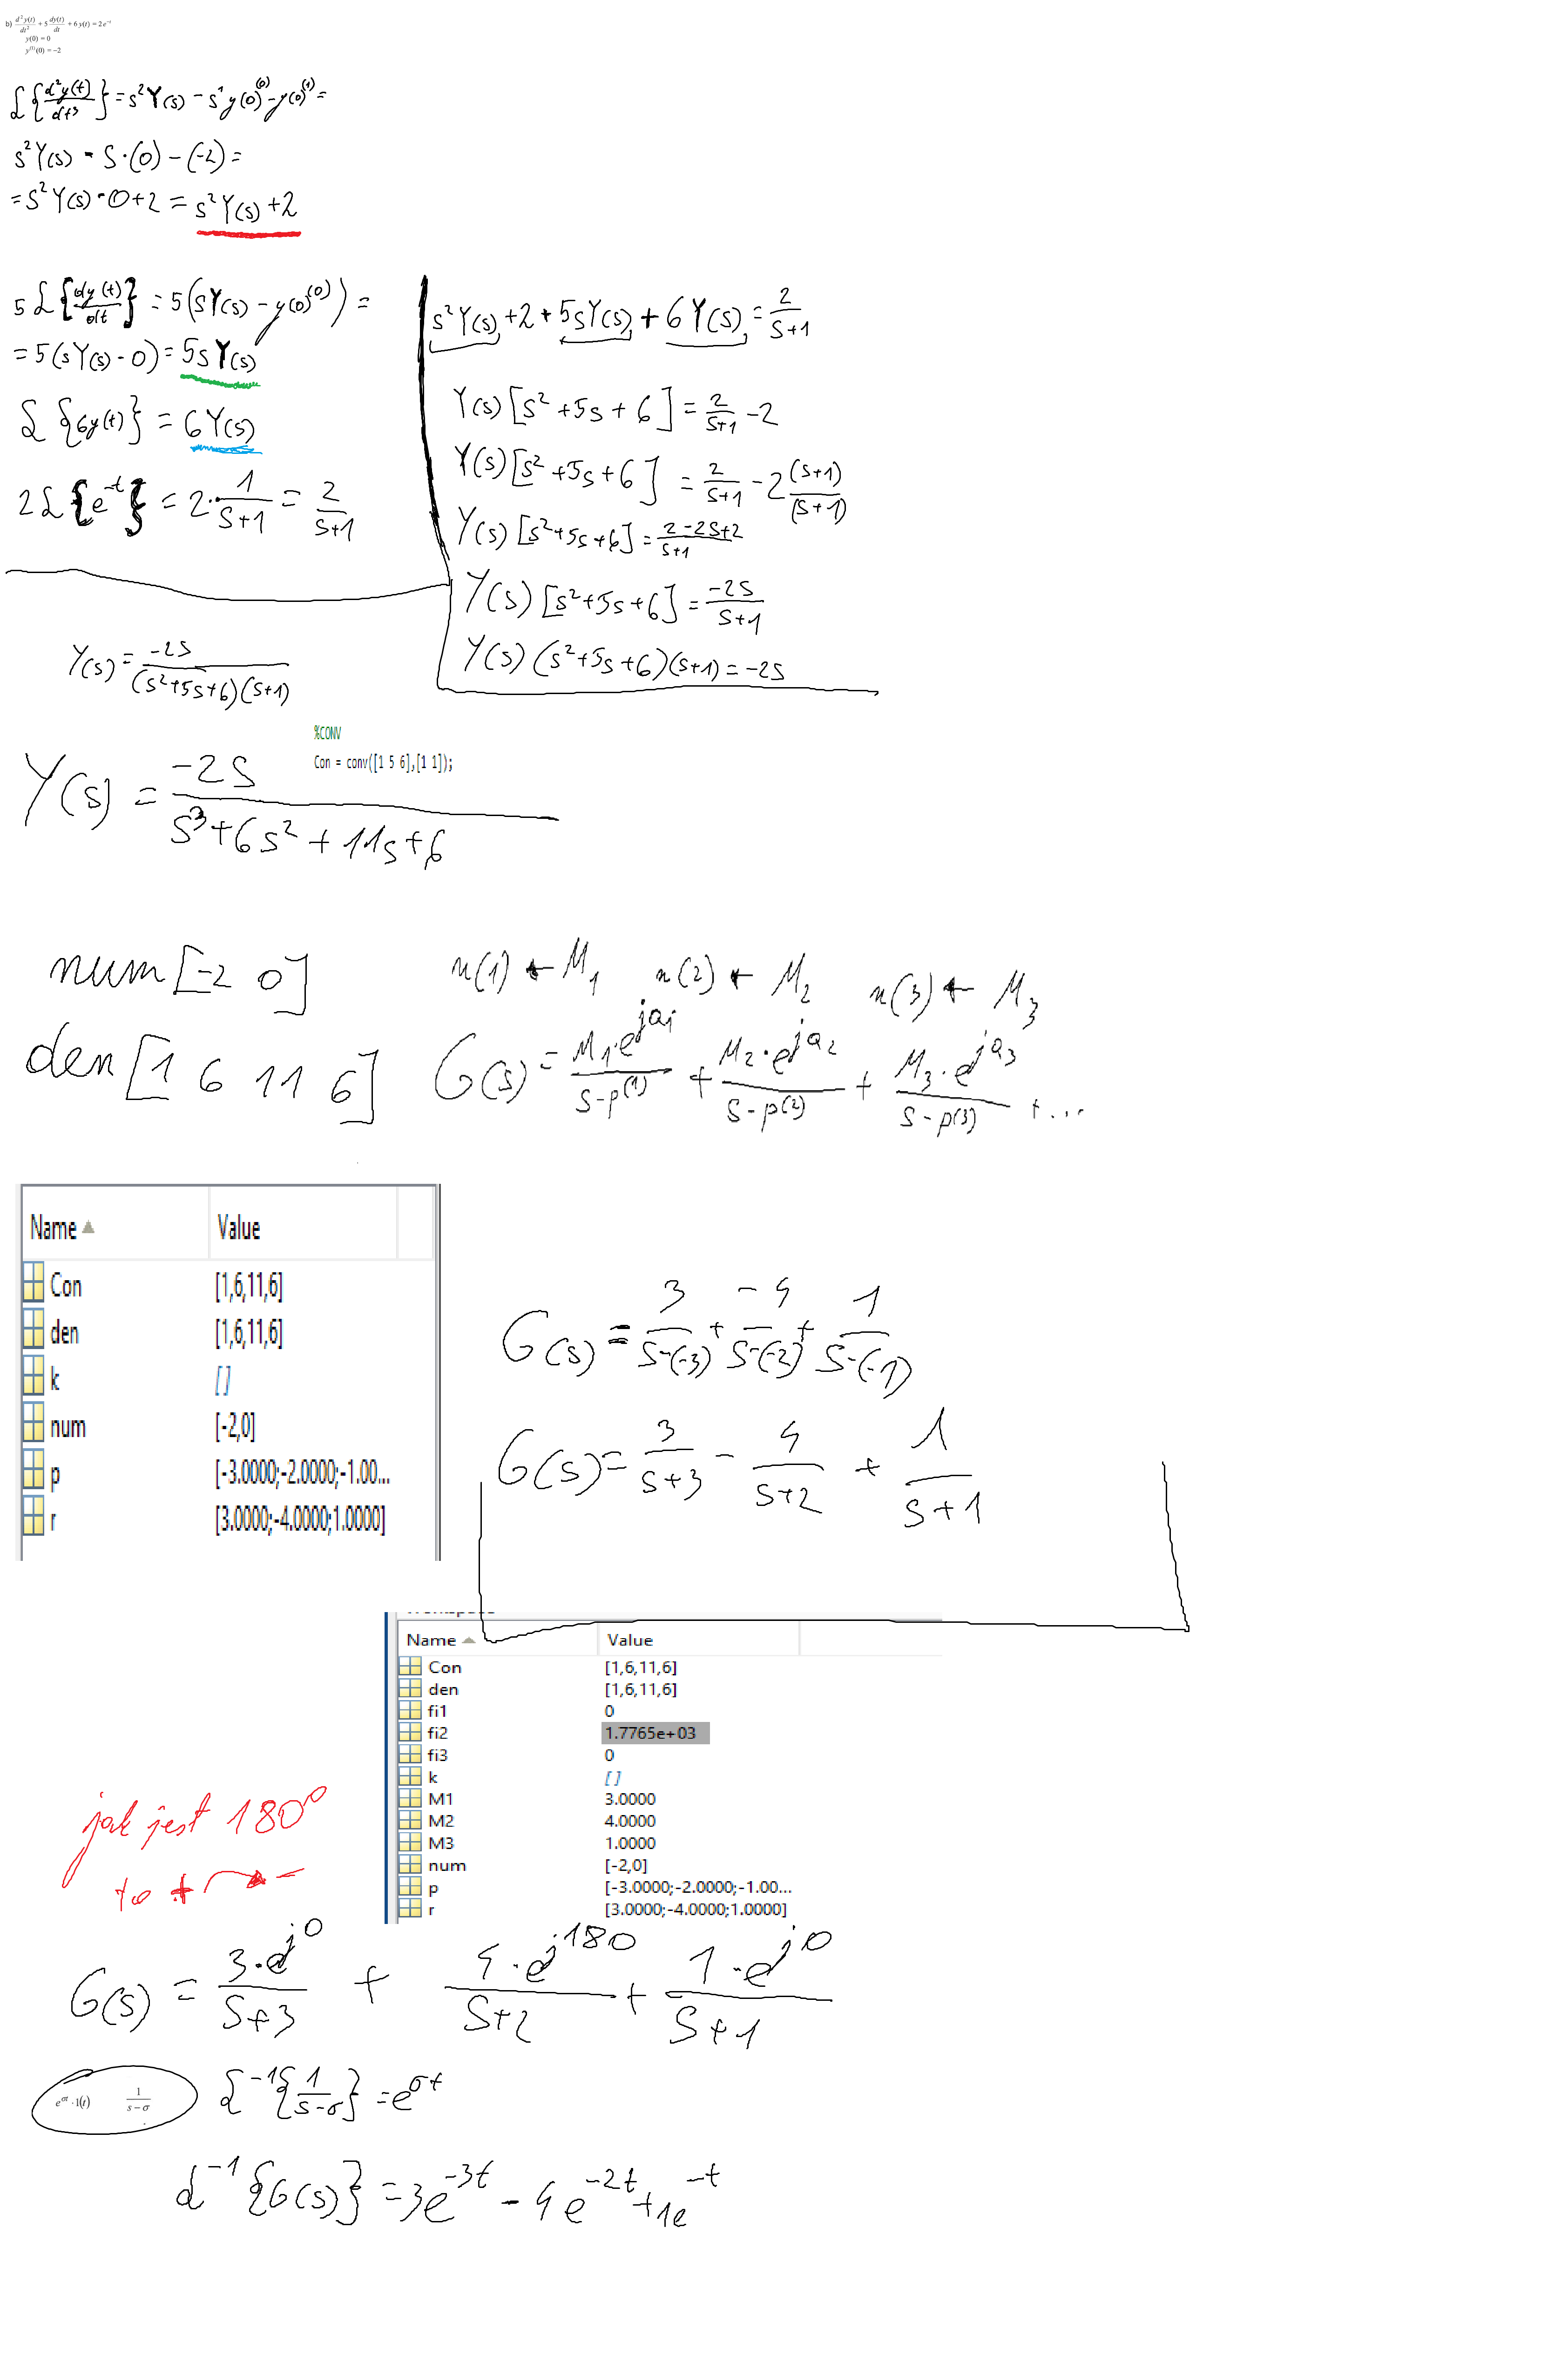 b) d²y(t)/dt² + 5 dy(t)/dt + 6 y(t) = 2 e⁻ᵗ
y(0) = 0
y⁽¹⁾(0) = −2
ℒ{d²y(t)/dt³} = s²Y(s) − s¹y(0)⁽⁰⁾ − y(0)⁽¹⁾ =
s²Y(s) - s·(0) − (−2) =
= s²Y(s) - 0 + 2 = s²Y(s) + 2
5ℒ{dy(t)/dt} = 5(sY(s) − y(0)⁽⁰⁾) =
= 5(sY(s) - 0) = 5sY(s)
ℒ{6y(t)} = 6Y(s)
2ℒ{e⁻ᵗ} = 2·1/(s+1) = 2/(s+1)
s²Y(s) + 2 + 5sY(s) + 6Y(s) = 2/(s+1)
Y(s)[s² + 5s + 6] = 2/(s+1) − 2
Y(s)[s² + 5s + 6] = 2/(s+1) − 2 (s+1)/(s+1)
Y(s)[s²+5s+6] = (2−2s+2)/(s+1)
Y(s)[s²+5s+6] = −2s/(s+1)
Y(s)(s²+5s+6)(s+1) = −2s
Y(s) = −2s/((s²+5s+6)(s+1))
%CONV
Con = conv([1 5 6],[1 1]);
Y(s) = −2s/(s³+6s²+11s+6)
num[-2 0]
den[1 6 11 6]
r(1) ← M₁ r(2) ← M₂ r(3) ← M₃
G(s) = M₁·e^(ja₁)/(s−p(1)) + M₂·e^(ja₂)/(s−p(2)) + M₃·e^(ja₃)/(s−p(3)) + ...
Name Value
Con [1,6,11,6]
den [1,6,11,6]
k []
num [-2,0]
p [-3.0000;-2.0000;-1.00...
r [3.0000;-4.0000;1.0000]
G(s) = 3/(s−(−3)) + −4/(s−(−2)) + 1/(s−(−1))
G(s) = 3/(s+3) − 4/(s+2) + 1/(s+1)
Name Value
Con [1,6,11,6]
den [1,6,11,6]
fi1 0
fi2 1.7765e+03
fi3 0
k []
M1 3.0000
M2 4.0000
M3 1.0000
num [-2,0]
p [-3.0000;-2.0000;-1.00...
r [3.0000;-4.0000;1.0000]
jak jest 180°
to + → −
G(s) = 3·e^(j0)/(s+3) + 4·e^(j180)/(s+2) + 1·e^(j0)/(s+1)
e^(σt)·1(t) 1/(s−σ)
ℒ⁻¹{1/(s−σ)} = e^(σt)
ℒ⁻¹{G(s)} = 3e^(−3t) − 4e^(−2t) + 1e^(−t)